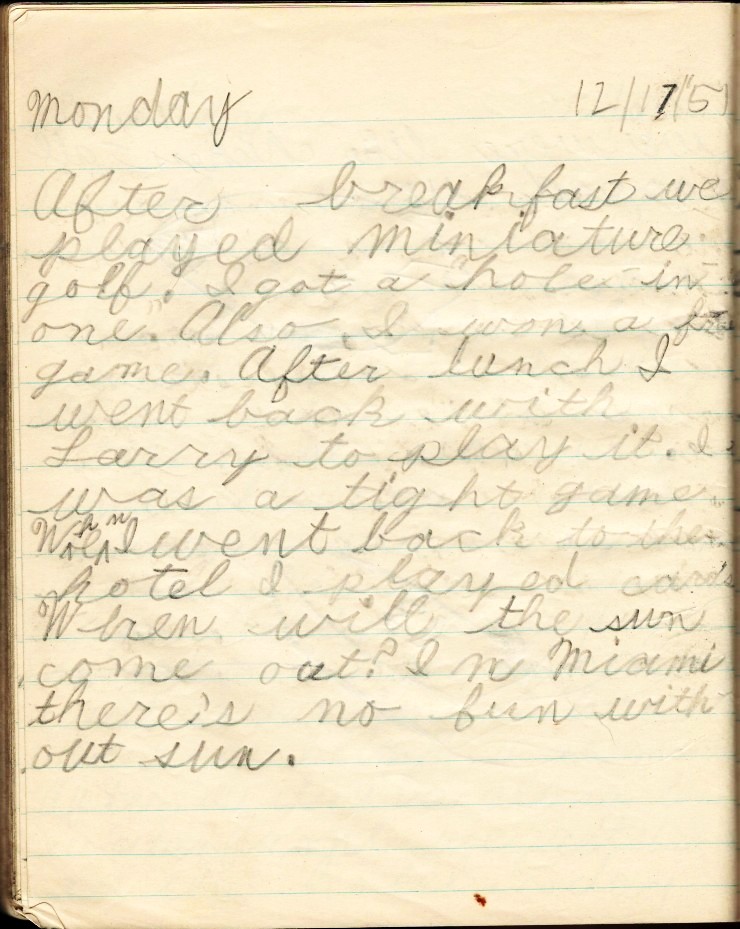 Monday 12/17/51
After breakfast we
played miniature
golf. I got a hole in
one. Also I won a free
game. After lunch I
went back with
Larry to play it. I
was a tight game.
When I went back to the
hotel I played cards
When will the sun
come out? In Miami
there's no fun with
out sun.